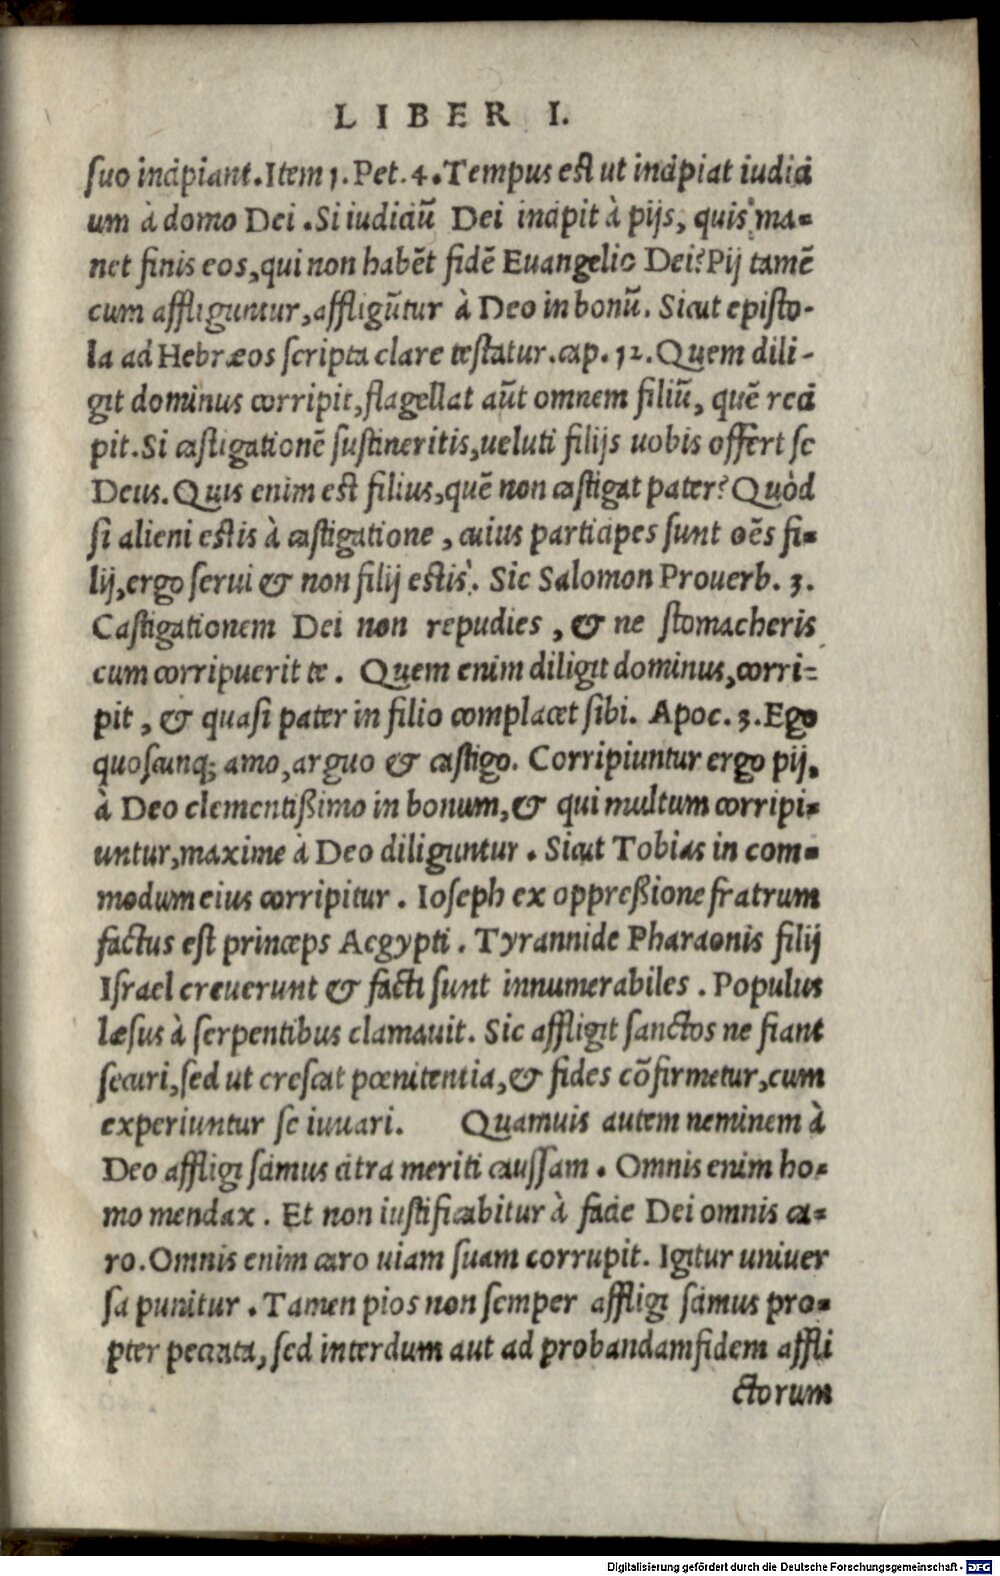 LIBER I.
suo incipiant. Item 1. Pet. 4. Tempus est ut incipiat iudici
um à domo Dei. Si iudiciũ Dei incipit à pijs, quis ma-
net finis eos, qui non habẽt fidẽ Euangelio Dei? Pij tamẽ
cum affliguntur, affligũtur à Deo in bonũ. Sicut episto-
la ad Hebræos scripta clare testatur. cap. 12. Quem dili-
git dominus corripit, flagellat aũt omnem filiũ, quẽ reci
pit. Si castigationẽ sustineritis, ueluti filijs uobis offert se
Deus. Quis enim est filius, quẽ non castigat pater? Quòd
si alieni estis à castigatione, cuius participes sunt oẽs fi-
lij, ergo serui & non filij estis. Sic Salomon Prouerb. 3.
Castigationem Dei non repudies, & ne stomacheris
cum corripuerit te. Quem enim diligit dominus, corri-
pit, & quasi pater in filio complacet sibi. Apoc. 3. Ego
quoscunq; amo, arguo & castigo. Corripiuntur ergo pij,
à Deo clementißimo in bonum, & qui multum corripi-
untur, maxime à Deo diliguntur. Sicut Tobias in com-
modum eius corripitur. Ioseph ex oppreßione fratrum
factus est princeps Aegypti. Tyrannide Pharaonis filij
Israel creuerunt & facti sunt innumerabiles. Populus
læsus à serpentibus clamauit. Sic affligit sanctos ne fiant
securi, sed ut crescat pœnitentia, & fides cõfirmetur, cum
experiuntur se iuuari. Quamuis autem neminem à
Deo affligi scimus citra meriti caussam. Omnis enim ho-
mo mendax. Et non iustificabitur à facie Dei omnis ca-
ro. Omnis enim caro uiam suam corrupit. Igitur uniuer
sa punitur. Tamen pios non semper affligi scimus pro-
pter peccata, sed interdum aut ad probandam fidem affli
ctorum
Digitalisierung gefördert durch die Deutsche Forschungsgemeinschaft - DFG